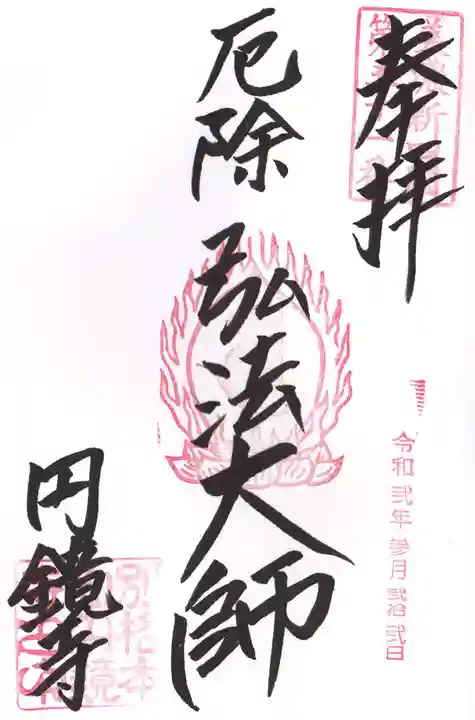 奉拝
令和弐年参月弐拾弐日
厄除 弘法大師
円鏡寺